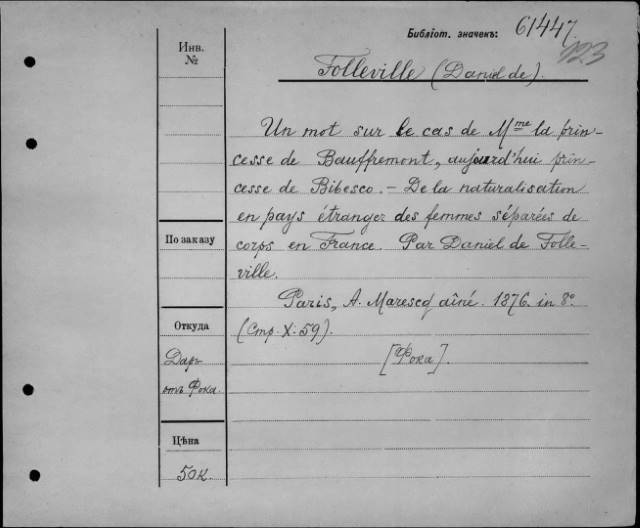 Библіот. значекъ: 61447.
123
Инв.
№
Folleville (Daniel de).
Un mot sur le cas de Mme la prin-
cesse de Bauffremont, aujourd'hui prin-
cesse de Bibesco. — De la naturalisation
en pays étranger des femmes séparées de
corps en France. Par Daniel de Folle-
ville.
Paris, A. Marescq aîné. 1876. in 8°.
(Стр. X. 59).
[Фока].
По заказу
Откуда
Даръ
отъ Фока.
Цѣна
50 к.